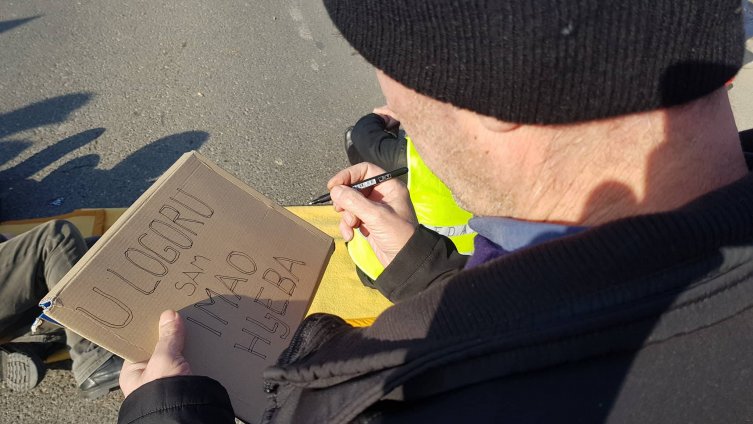 U LOGORU
SAM
IMAO
HLJEBA